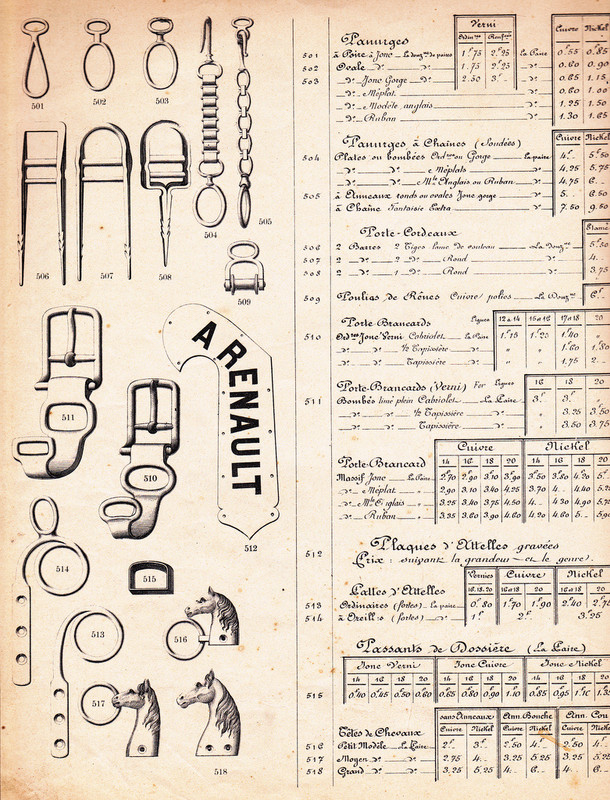 501
502
503
504
505
506
507
508
509
A RENAULT
511
510
512
514
515
513
516
517
518
Verni
Cuivre Nickel
Panurges
501 à Poire à Jonc La douz.ne de paires 1f.75 2f.25 La Paire 0f.55 0f.85
502 Ovale d° d° 1.75 2.25 d° 0.60 0.90
503 d° Jonc Gorge d° 2.50 3.- d° 0.65 1.15
d° Méplat d° 0.60 1.00
d° Modèle anglais d° 1.25 1.50
d° Ruban d° 1.30 1.65
Panurges à Chaînes (Soudées) Cuivre Nickel
504 Plates ou bombées Ord.res ou Gorge La paire 4f.- 5f.50
d° d° d° Méplats d° 4.25 5.75
d° d° d° Mle Anglais ou Ruban d° 4.75 6.-
505 à Anneaux ronds ou ovales Jonc gorge d° 5.- 6.50
à Chaîne Fantaisie Extra d° 7.50 9.50
Porte-Cordeaux Étamé
506 2 Barres 2 Tiges lame de couteau La douz.ne
507 2 d° 2 d° Rond d° 4.-
508 2 d° 1 d° Rond d° 3.75
509 Poulies de Rênes Cuivre polies La Douz.ne 6f.-
Porte-Brancards Lignes 12 à 14 15 à 16 17 à 18 20
510 Ord.res Jonc Verni Cabriolet La Paire 1f.15 1f.25 1f.40 "
d° d° ½ Tapissière d° " " 1.60 1.80
d° d° Tapissière d° " " 1.75 2.-
Porte-Brancards (Verni) fer Lignes 16 18 20
511 Bombés limé plein Cabriolet La Paire 3f. 3f. "
d° d° d° ½ Tapissière d° 3.25 3.50
d° d° d° Tapissière d° 3.50 3.75
Cuivre Nickel
Porte-Brancard 14 16 18 20 14 16 18 20
Massif Jonc La Paire 2f.70 2f.90 3f.10 3f.90 3f.50 3f.80 4f.20
d° Méplat d° 2.90 3.10 3.40 4.25 3.70 4.- 4.40
d° Mle Anglais d° 3.25 3.40 3.75 4.50 4.- 4.30 4.90
d° Ruban d° 3.35 3.60 3.90 4.60 4.20 4.60 5.-
512 Plaques d'Attelles gravées
Prix: suivant la grandeur et le genre.
Vernies Cuivre Nickel
Lattes d'Attelles 16.18.20 16 à 18 20 16 à 18 20
513 Ordinaires (fortes) La paire 0f.80 1f.70 1f.90 2f.40 2f.75
514 à Oreilles (fortes) d° 1f. 2f. 3f.25
Passants de Dossière (La Paire)
Jonc Verni Jonc Cuivre Jonc Nickel
14 16 18 20 14 16 18 20 14 16 18 20
515 0f.40 0f.45 0f.50 0f.60 0f.65 0f.80 0f.90 1f.10 0f.85 0f.95 1f.10
sans Anneaux Ann. Bouche Ann. Cou
Têtes de Chevaux Cuivre Nickel Cuivre Nickel Cuivre Nickel
516 Petit Modèle La Paire 2f. 3f. 2f.50 4f. 2f.50 4f.
517 Moyen d° d° 2.75 4.- 3.25 5.25 3.25 5.25
518 Grand d° d° 3.25 5.25 4.- 6.- 4.- 6.-